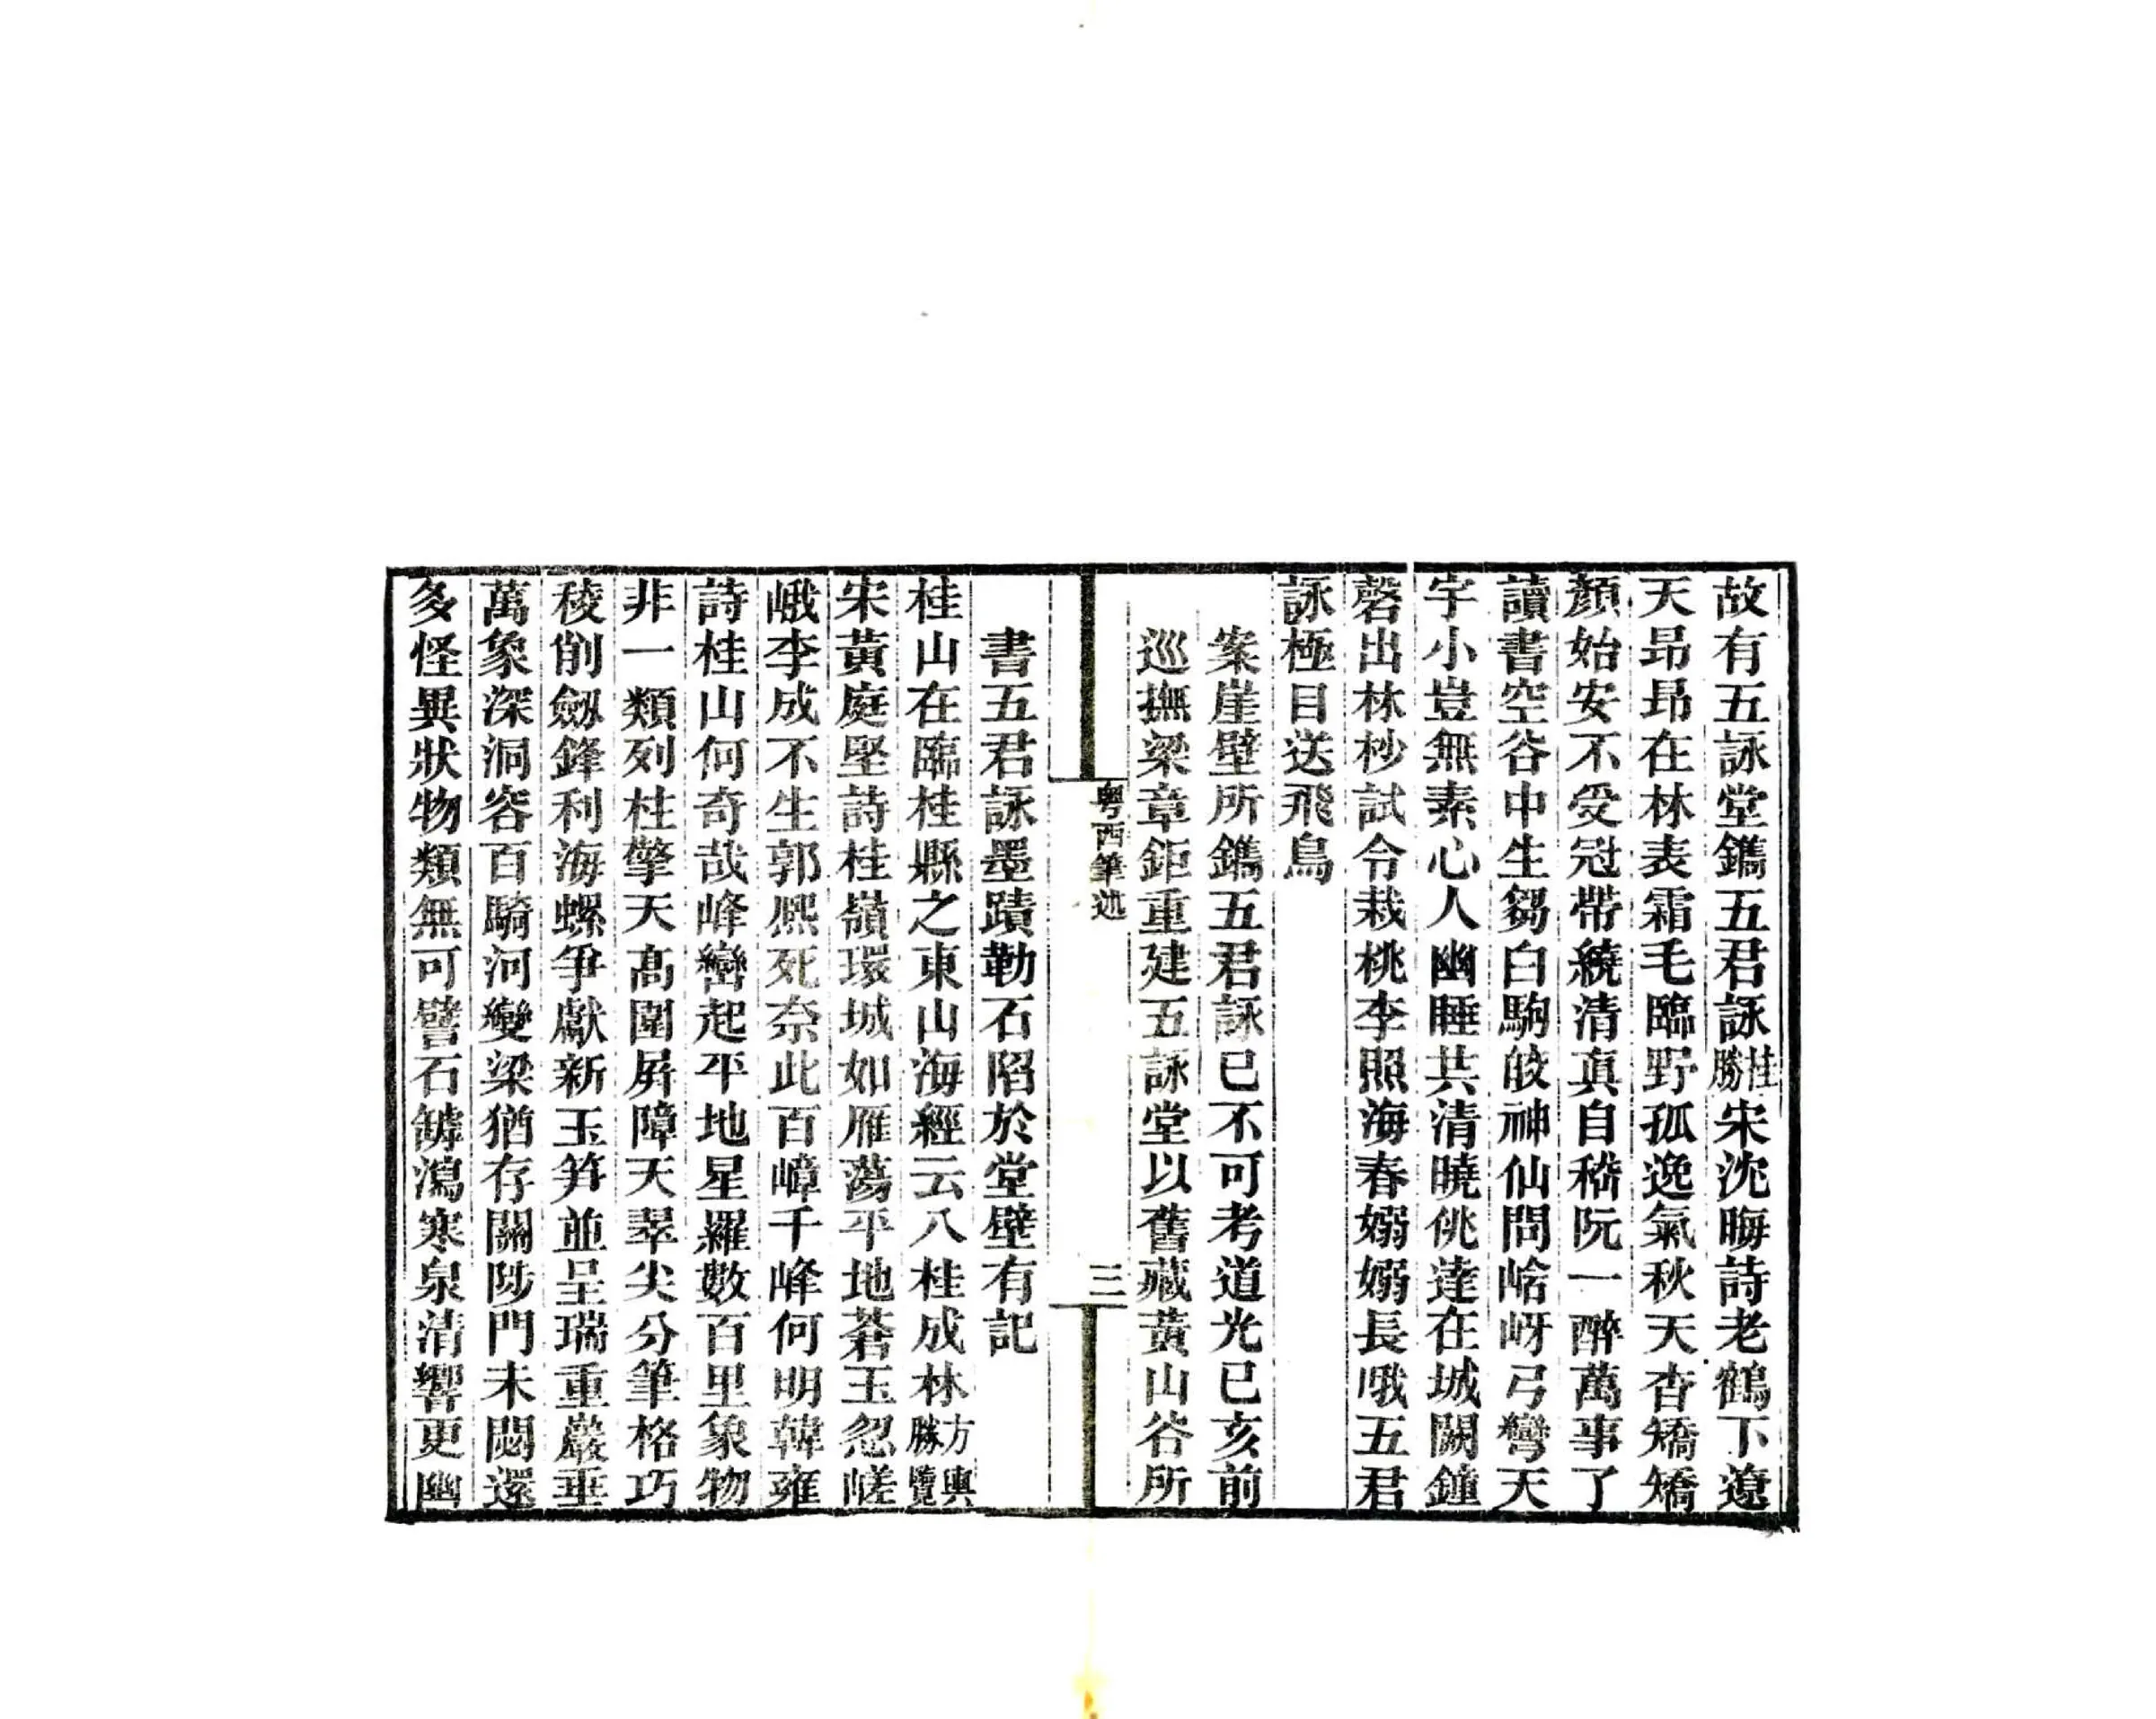 故有五詠堂鐫五君詠桂勝宋沈晦詩老鶴下遼
天昻昻在林表霜毛臨野孤逸氣秋天杳矯矯
顏始安不受冠帶繞清真自嵇阮一醉萬事了
讀書空谷中生芻白駒皎神仙問峆岈弓彎天
宇小豈無素心人幽睡共清曉佻達在城闕鐘
磬出林杪試令栽桃李照海春嫋嫋長哦五君
詠極目送飛鳥
案崖壁所鐫五君詠已不可考道光已亥前
巡撫梁章鉅重建五詠堂以舊藏黃山谷所
粵西筆述
三
書五君詠墨蹟勒石陷於堂壁有記
桂山在臨桂縣之東山海經云八桂成林方輿勝覽
宋黃庭堅詩桂嶺環城如雁蕩平地蒼玉忽嵯
峨李成不生郭熙死奈此百嶂千峰何明韓雍
詩桂山何奇哉峰巒起平地星羅數百里象物
非一類列柱擎天高圍屏障天翠尖分筆格巧
稜削劔鋒利海螺爭獻新玉笋並呈瑞重巖垂
萬象深洞容百騎河變梁猶存關陟門未閟還
多怪異狀物類無可譬石罅瀉寒泉清響更幽